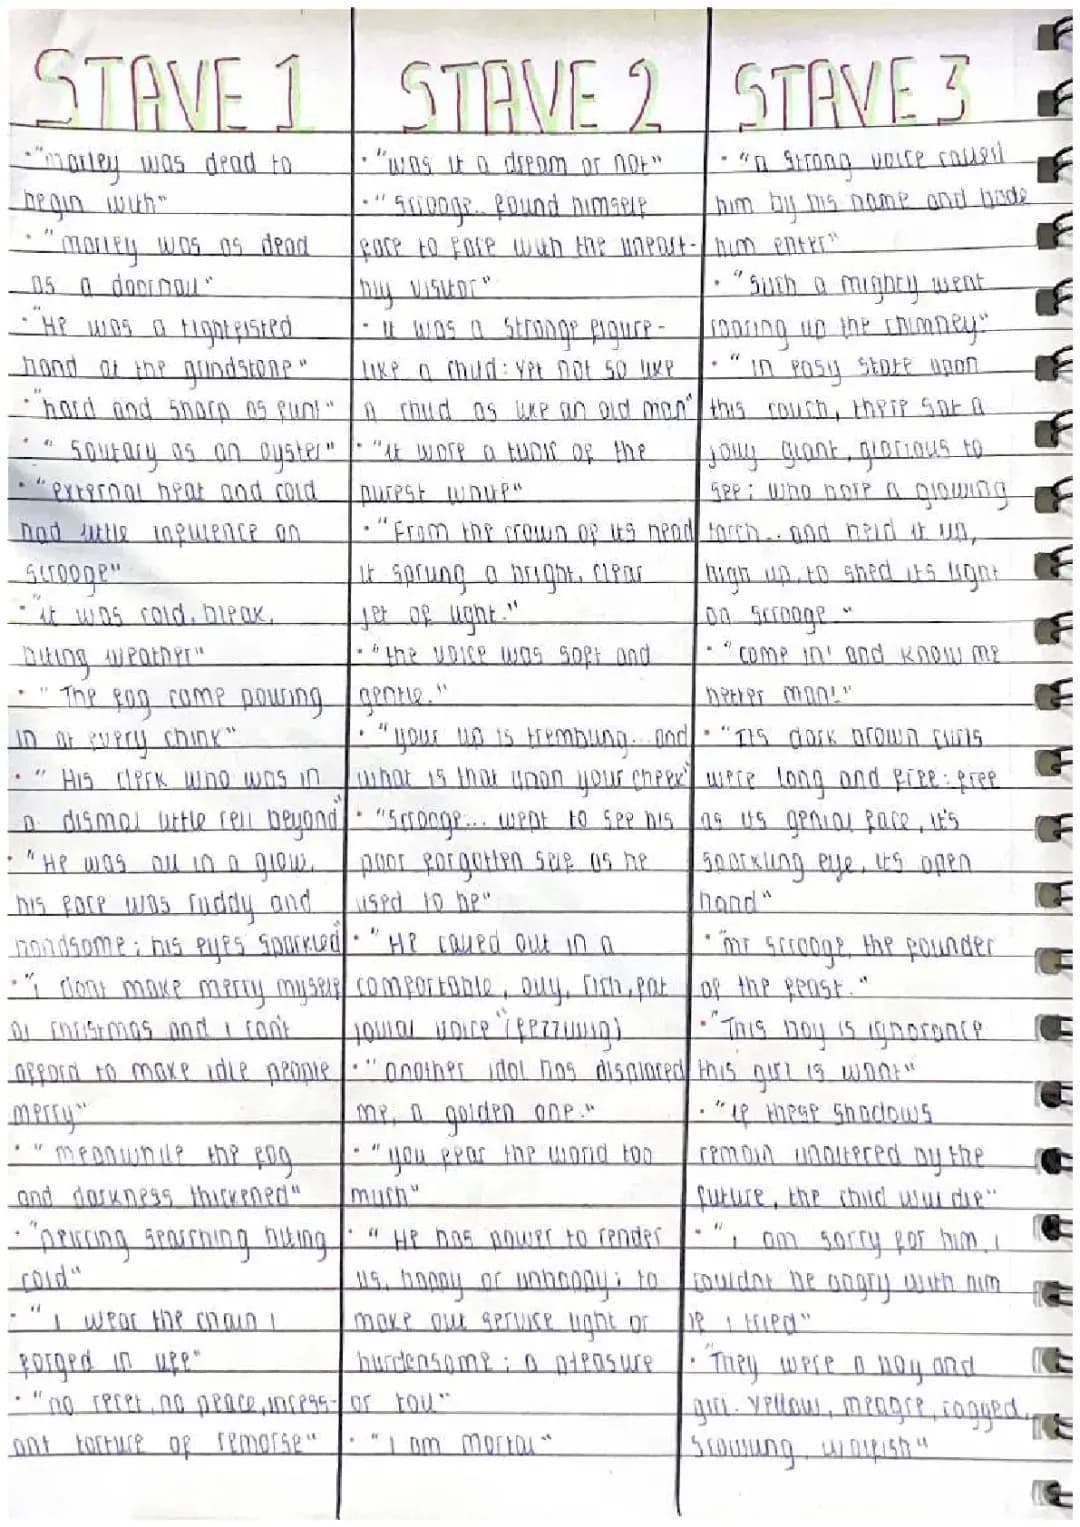 STAVE 1
• "marley was dead to
begin with"
• "marley was as dead
as a doornail"
• "He was a tightfisted
hand at the grindstone"
• "hard and sharp as flint"
• "solitary as an oyster"
• "external heat and cold
had little influence on
scrooge"
• "it was cold, bleak,
biting weather"
• "The fog came pouring
in at every chink"
• "His clerk who was in
a dismal little cell beyond"
• "He was all in a glow,
his face was ruddy and
handsome; his eyes sparkled"
• "i dont make merry myself
at christmas and i can't
afford to make idle people
merry"
• "meanwhile the fog
and darkness thickened"
• "peircing searching biting
cold"
• "i wear the chain i
forged in life"
• "no reset, no peace, incess-
ant torture of remorse"
STAVE 2
• "was it a dream or not"
• "scrooge.. found himself
face to face with the uneart-
hly visitor"
• it was a strange figure-
like a child: yet not so like
a child as like an old man"
• "it wore a tunic of the
purest white"
• "From the crown of its head
it sprung a bright, clear
jet of light."
• "the voice was soft and
gentle."
• "your lip is trembling... and
what is that upon your cheek"
• "Scrooge... wept to see his
poor forgotten self as he
used to be"
• "He called out in a
comfortable, oily, rich, fat
jovial voice" (fezziwig)
• "another idol has displaced
me, a golden one."
• "you fear the world too
much"
• "He has power to render
us, happy or unhappy; to
make our service light or
burdensome; a pleasure
or toil"
• "I am mortal"
STAVE 3
• "a strong voice called
him by his name and bade
him enter"
• "Such a mighty went
roaring up the chimney"
• "in easy state upon
this couch, there sat a
jolly giant, glorious to
see; who bore a glowing
torch... and held it up,
high up, to shed its light
on scrooge."
• "come in! and know me
better man!"
• "Its dark brown curls
were long and free: free
as its genial face, it's
sparkling eye, its open
hand"
• "mr scrooge, the founder
of the feast."
• "This boy is ignorance
this girl is want"
• "if these shadows
remain unaltered by the
future, the child will die"
• "i am sorry for him, i
couldnt be angry with him
if i tried"
• "They were a boy and
girl. Yellow, meagre, ragged,
scowling, wolfish"